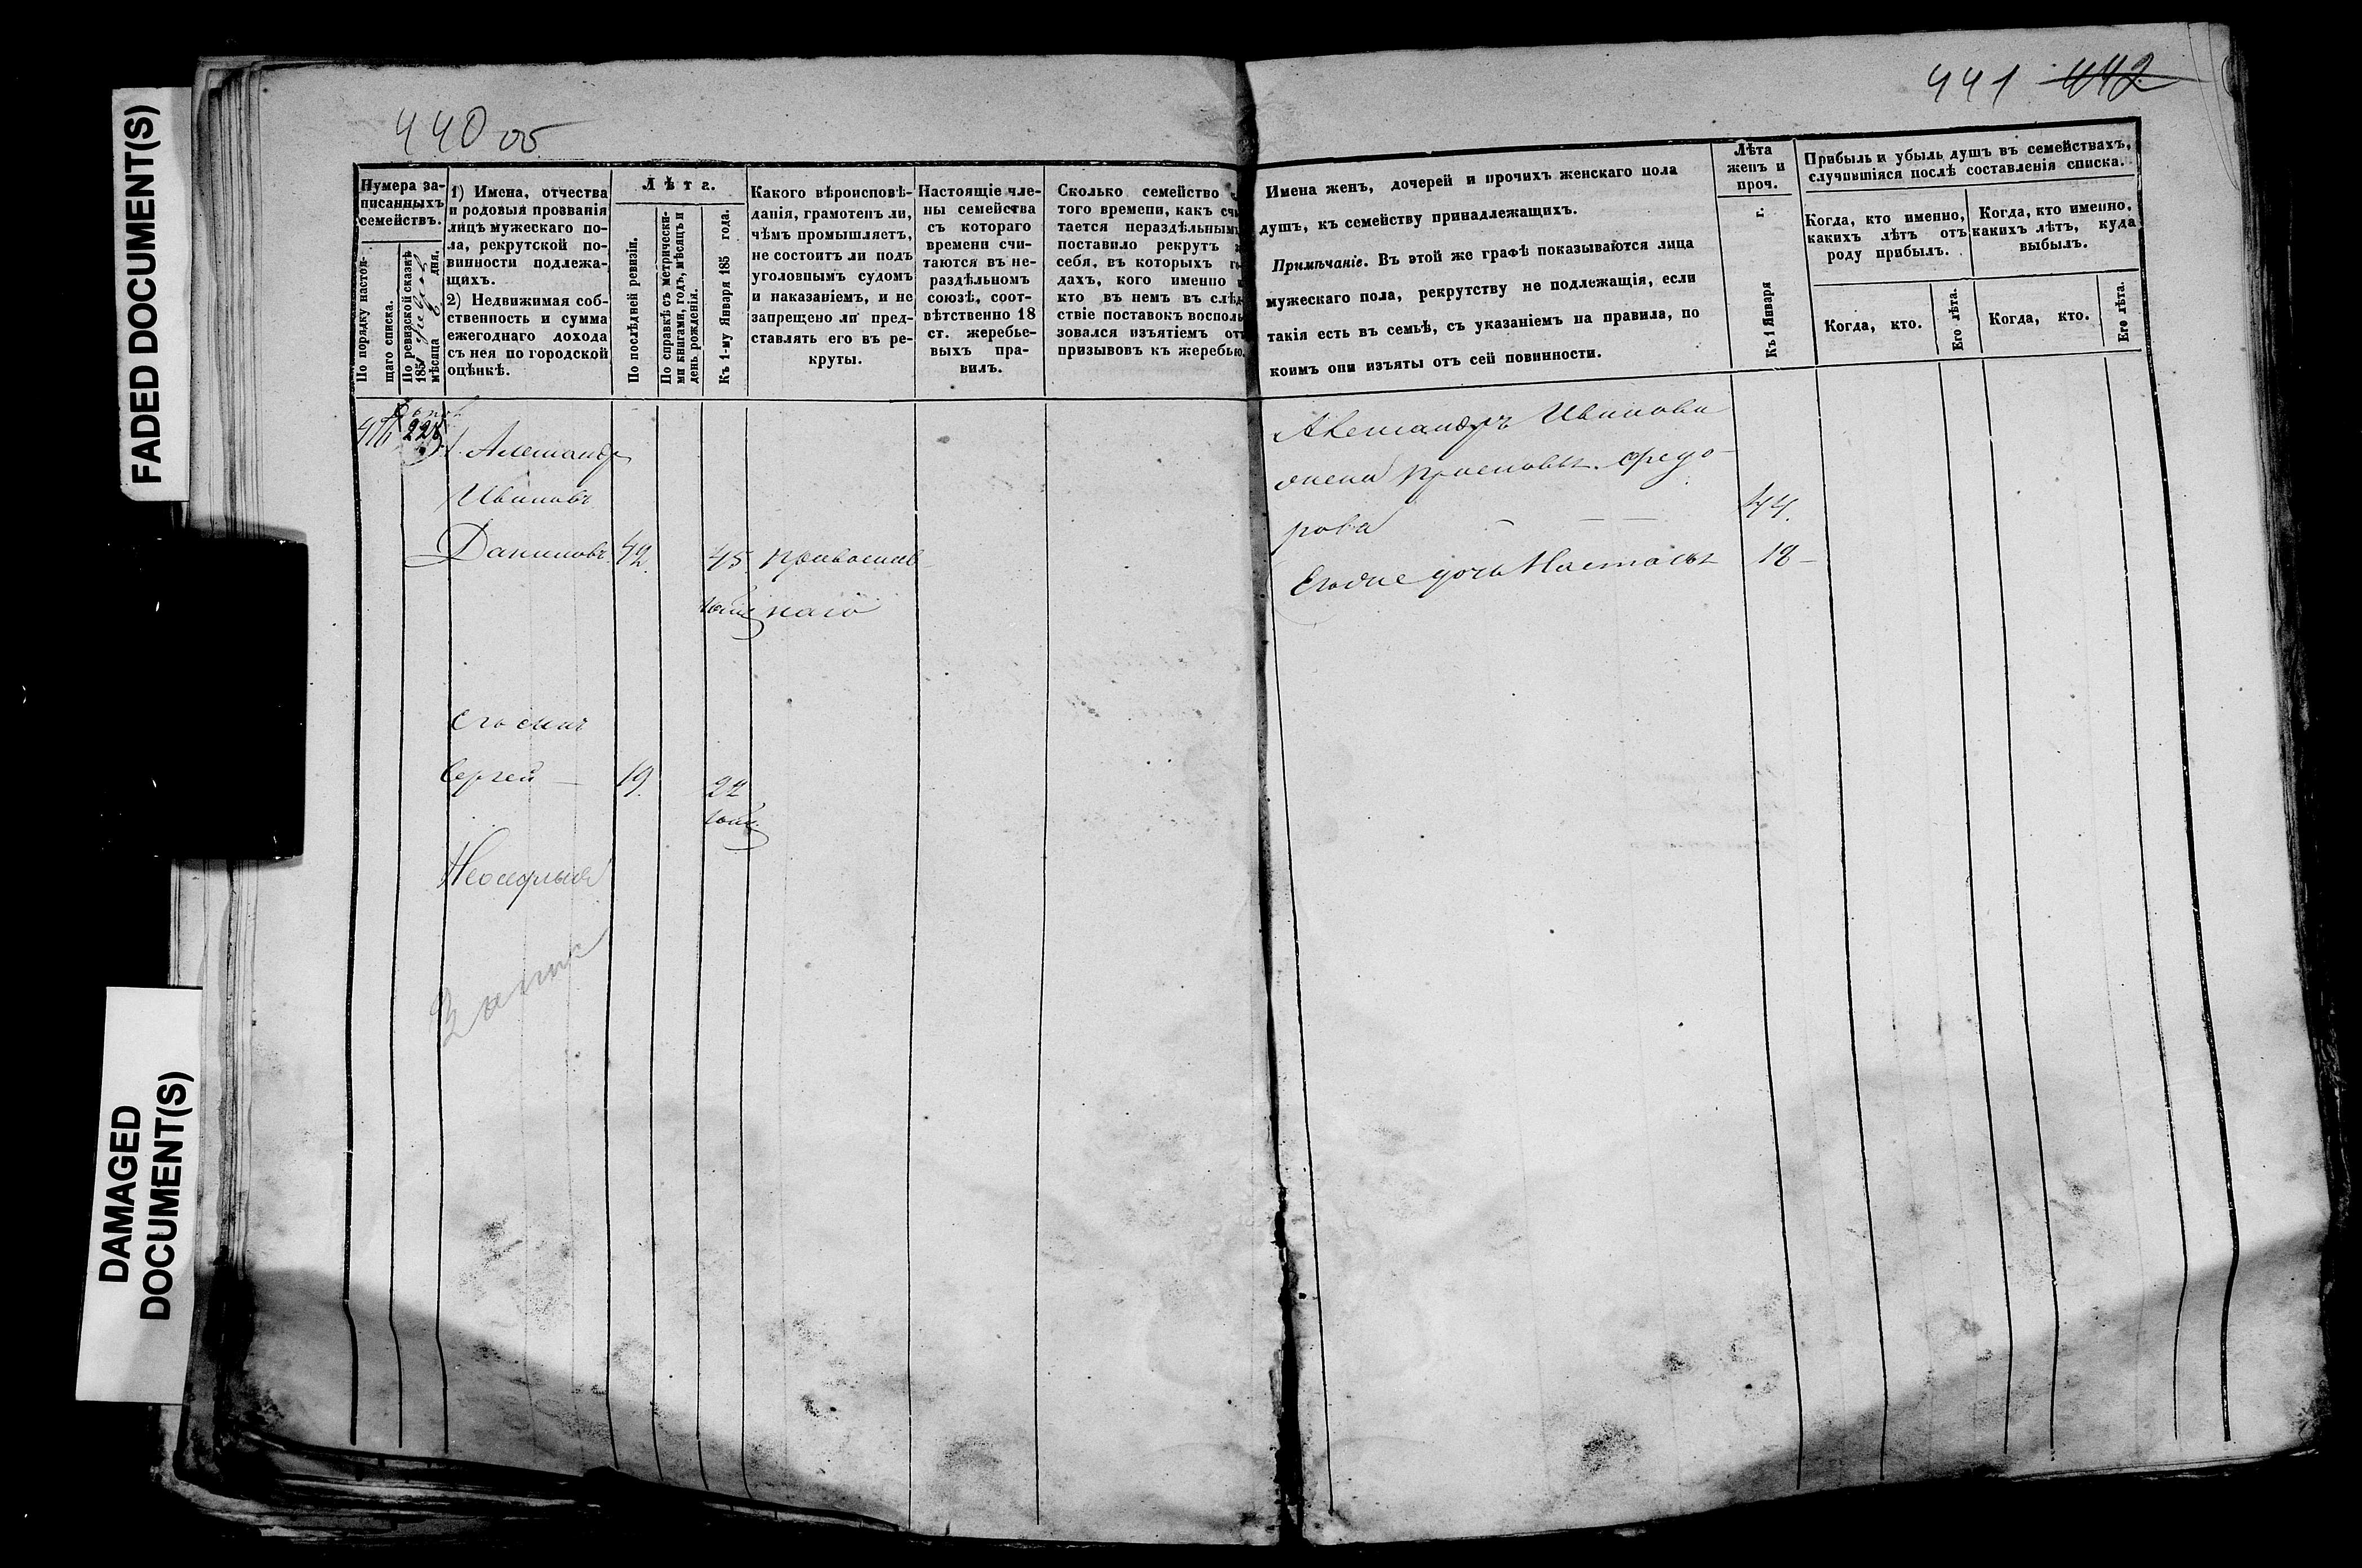 FADED DOCUMENT(S)
DAMAGED
DOCUMENT(S)
440 об
Нумера за-
писанныхъ
семействъ.
По порядку настоя-
щаго списка.
По ревизской сказкѣ
185 года
мѣсяца дня.
1) Имена, отчества
и родовыя прозванія
лицъ мужескаго по-
ла, рекрутской по-
винности подлежа-
щихъ.
2) Недвижимая соб-
ственность и сумма
ежегоднаго дохода
съ нея по городской
оцѣнкѣ.
Лѣта.
По послѣдней ревизіи.
По справкѣ съ метрически-
ми книгами, годъ, мѣсяцъ и
день рожденія.
Къ 1-му Января 185 года.
Какого вѣроисповѣ-
данія, грамотенъ ли,
чѣмъ промышляетъ,
не состоитъ ли подъ
уголовнымъ судомъ
и наказаніемъ, и не
запрещено ли пред-
ставлять его въ ре-
круты.
Настоящіе чле-
ны семейства
съ котораго
времени счи-
таются въ не-
раздѣльномъ
союзѣ, соот-
вѣтственно 18
ст. жеребье-
выхъ пра-
вилъ.
Сколько семейство с
того времени, какъ счи
тается нераздѣльнымъ
поставило рекрутъ
себя, въ которыхъ го
дахъ, кого именно и
кто въ немъ въ слѣд
ствіе поставокъ восполь
зовался изъятіемъ отъ
призывовъ къ жеребью.
416
225
1. Александръ
Ивановъ
Даниловъ 42. 45 православ
наго
Его сынъ
Сергей — 19. 22
441 442
Имена женъ, дочерей и прочихъ женскаго пола
душъ, къ семейству принадлежащихъ.
Примѣчаніе. Въ этой же графѣ показываются лица
мужескаго пола, рекрутству не подлежащія, если
такія есть въ семьѣ, съ указаніемъ на правила, по
коимъ они изъяты отъ сей повинности.
Лѣта
женъ и
проч.
Къ 1 Января г.
Прибыль и убыль душъ въ семействахъ,
случившіяся послѣ составленія списка.
Когда, кто именно,
какихъ лѣтъ отъ
роду прибылъ.
Когда, кто именно,
какихъ лѣтъ, куда
выбылъ.
Когда, кто.
Его лѣта.
Когда, кто.
Его лѣта.
Александръ Иванова
жена Федо-
рова — — 44.
Егоже дочь Наталья 18 —